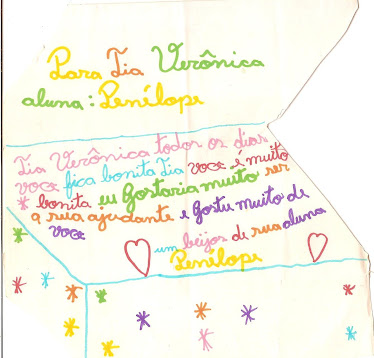 Para Tia Verônica
aluna: Penélope
Tia Verônica todos os dias
voce fica bonita Tia voce é muito
bonita eu Gostaria muito ser
a sua ajudante e Gostu muito de
voce
um beijos de sua aluna
Penélope